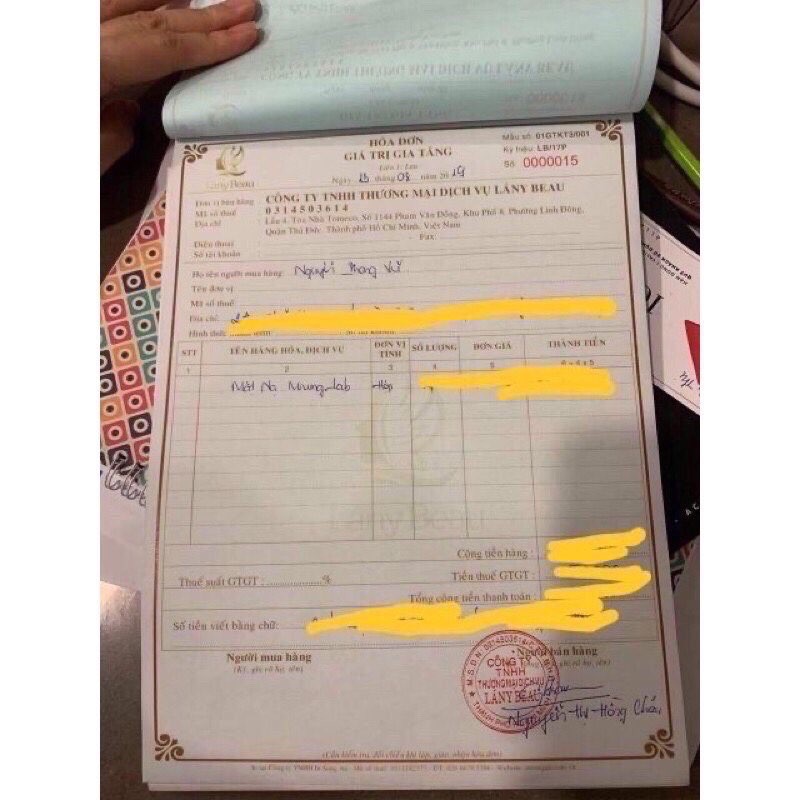 HÓA ĐƠN
GIÁ TRỊ GIA TĂNG
Liên 1: Lưu
Ngày 13 tháng 08 năm 2019
Mẫu số: 01GTKT3/001
Ký hiệu: LB/17P
Số: 0000015
Lány Beau
Đơn vị bán hàng : CÔNG TY TNHH THƯƠNG MẠI DỊCH VỤ LÁNY BEAU
Mã số thuế : 0314503614
Địa chỉ : Lầu 4, Tòa Nhà Trameco, Số 1144 Phạm Văn Đồng, Khu Phố 8, Phường Linh Đông,
Quận Thủ Đức, Thành phố Hồ Chí Minh, Việt Nam
Điện thoại : - Fax:
Số tài khoản :
Họ tên người mua hàng:
Tên đơn vị
Mã số thuế:
Địa chỉ:
Hình thức
STT TÊN HÀNG HÓA, DỊCH VỤ ĐƠN VỊ TÍNH SỐ LƯỢNG ĐƠN GIÁ THÀNH TIỀN
1 2 3 4 5
Mặt Nạ Nhung-Lab Hộp
Lány Beau
Cộng tiền hàng :
Thuế suất GTGT : % Tiền thuế GTGT :
Tổng cộng tiền thanh toán :
Số tiền viết bằng chữ:
Người mua hàng Người bán hàng
(Ký, ghi rõ họ, tên) ghi rõ họ, tên)
CÔNG TY
TNHH
THƯƠNG MẠI DỊCH VỤ
LÁNY BEAU
Nguyễn Thị Hồng
(Cần kiểm tra, đối chiếu khi lập, giao, nhận hóa đơn)